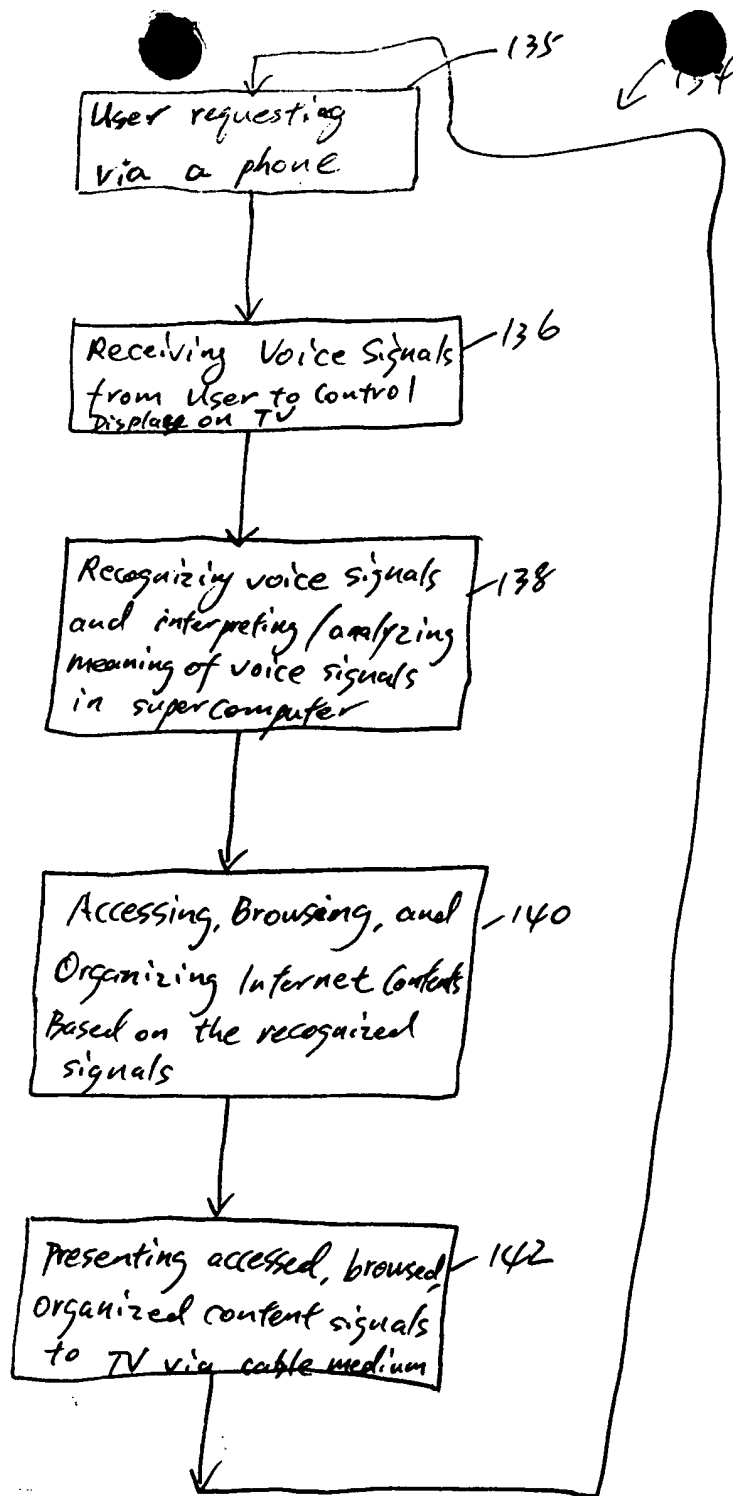 135
134
User requesting
via a phone
136
Receiving Voice Signals
from User to Control
Display on TV
138
Recognizing voice signals
and interpreting/analyzing
meaning of voice signals
in supercomputer
140
Accessing, Browsing, and
Organizing Internet Contents
Based on the recognized
signals
142
Presenting accessed, browsed,
organized content signals
to TV via cable medium